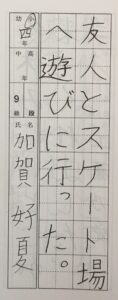 友人とスケート場
へ遊びに行った。
幼 小 四 年
中 高 年
9 級 段
氏名 加賀 好夏